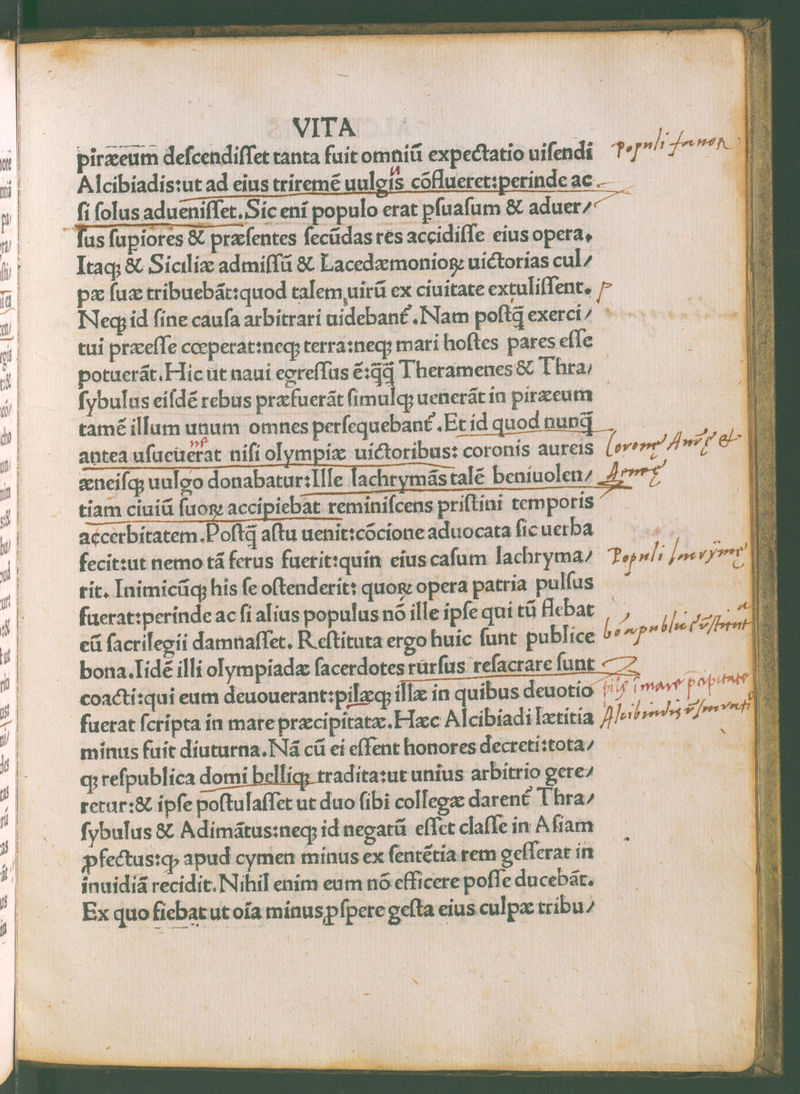 VITA
piræeum descendisset tanta fuit omniū expectatio uisendi
Alcibiadis:ut ad eius triremē uulgus cōflueret:perinde ac
si solus aduenisset.Sic eni populo erat ꝑsuasum & aduer/
sus supiores & præsentes secūdas res accidisse eius opera,
Itaq; & Siciliæ admissū & Lacedæmonioꝝ uictorias cul/
pæ suæ tribuebāt:quod talem uirū ex ciuitate extulissent.
Neq; id sine causa arbitrari uidebant̃.Nam postq̄ exerci/
tui præesse cœperat:neq; terra:neq; mari hostes pares esse
potuerāt.Hic ut naui egressus ē:q̄q̄ Theramenes & Thra/
sybulus eisdē rebus præfuerāt simulq; uenerāt in piræeum
tamē illum unum omnes persequebant̃.Et id quod nunq̄
antea usu euenerat nisi olympiæ uictoribus: coronis aureis
æneisq; uulgo donabatur:Ille lachrymās talē beniuolen/
tiam ciuiū suoꝝ accipiebat reminiscens pristini temporis
accerbitatem.Postq̄ astu uenit:cōcione aduocata sic uerba
fecit:ut nemo tā ferus fuerit:quin eius casum lachryma/
rit. Inimicūq; his se ostenderit: quoꝝ opera patria pulsus
fuerat:perinde ac si alius populus nō ille ipse qui tū flebat
eū sacrilegii damnasset. Restituta ergo huic sunt publice
bona.Iidē illi olympiadæ sacerdotes rursus resacrare sunt
coacti:qui eum deuouerant:pilæq; illæ in quibus deuotio
fuerat scripta in mare præcipitatæ.Hæc Alcibiadi lætitia
minus fuit diuturna.Nā cū ei essent honores decreti:tota/
q; respublica domi belliq; tradita:ut unius arbitrio gere/
retur:& ipse postulasset ut duo sibi collegæ darent̃ Thra/
sybulus & Adimātus:neq; id negatū esset classe in Asiam
ꝓfectus:q; apud cymen minus ex sentētia rem gesserat in
inuidiā recidit.Nihil enim eum nō efficere posse ducebāt.
Ex quo fiebat ut oīa minus ꝓspere gesta eius culpæ tribu/
Populi
Populi